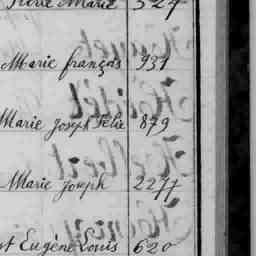 Marie 324
Marie françois 931
Marie Joseph Félix 879
Marie Joseph 2277
Eugène Louis 620